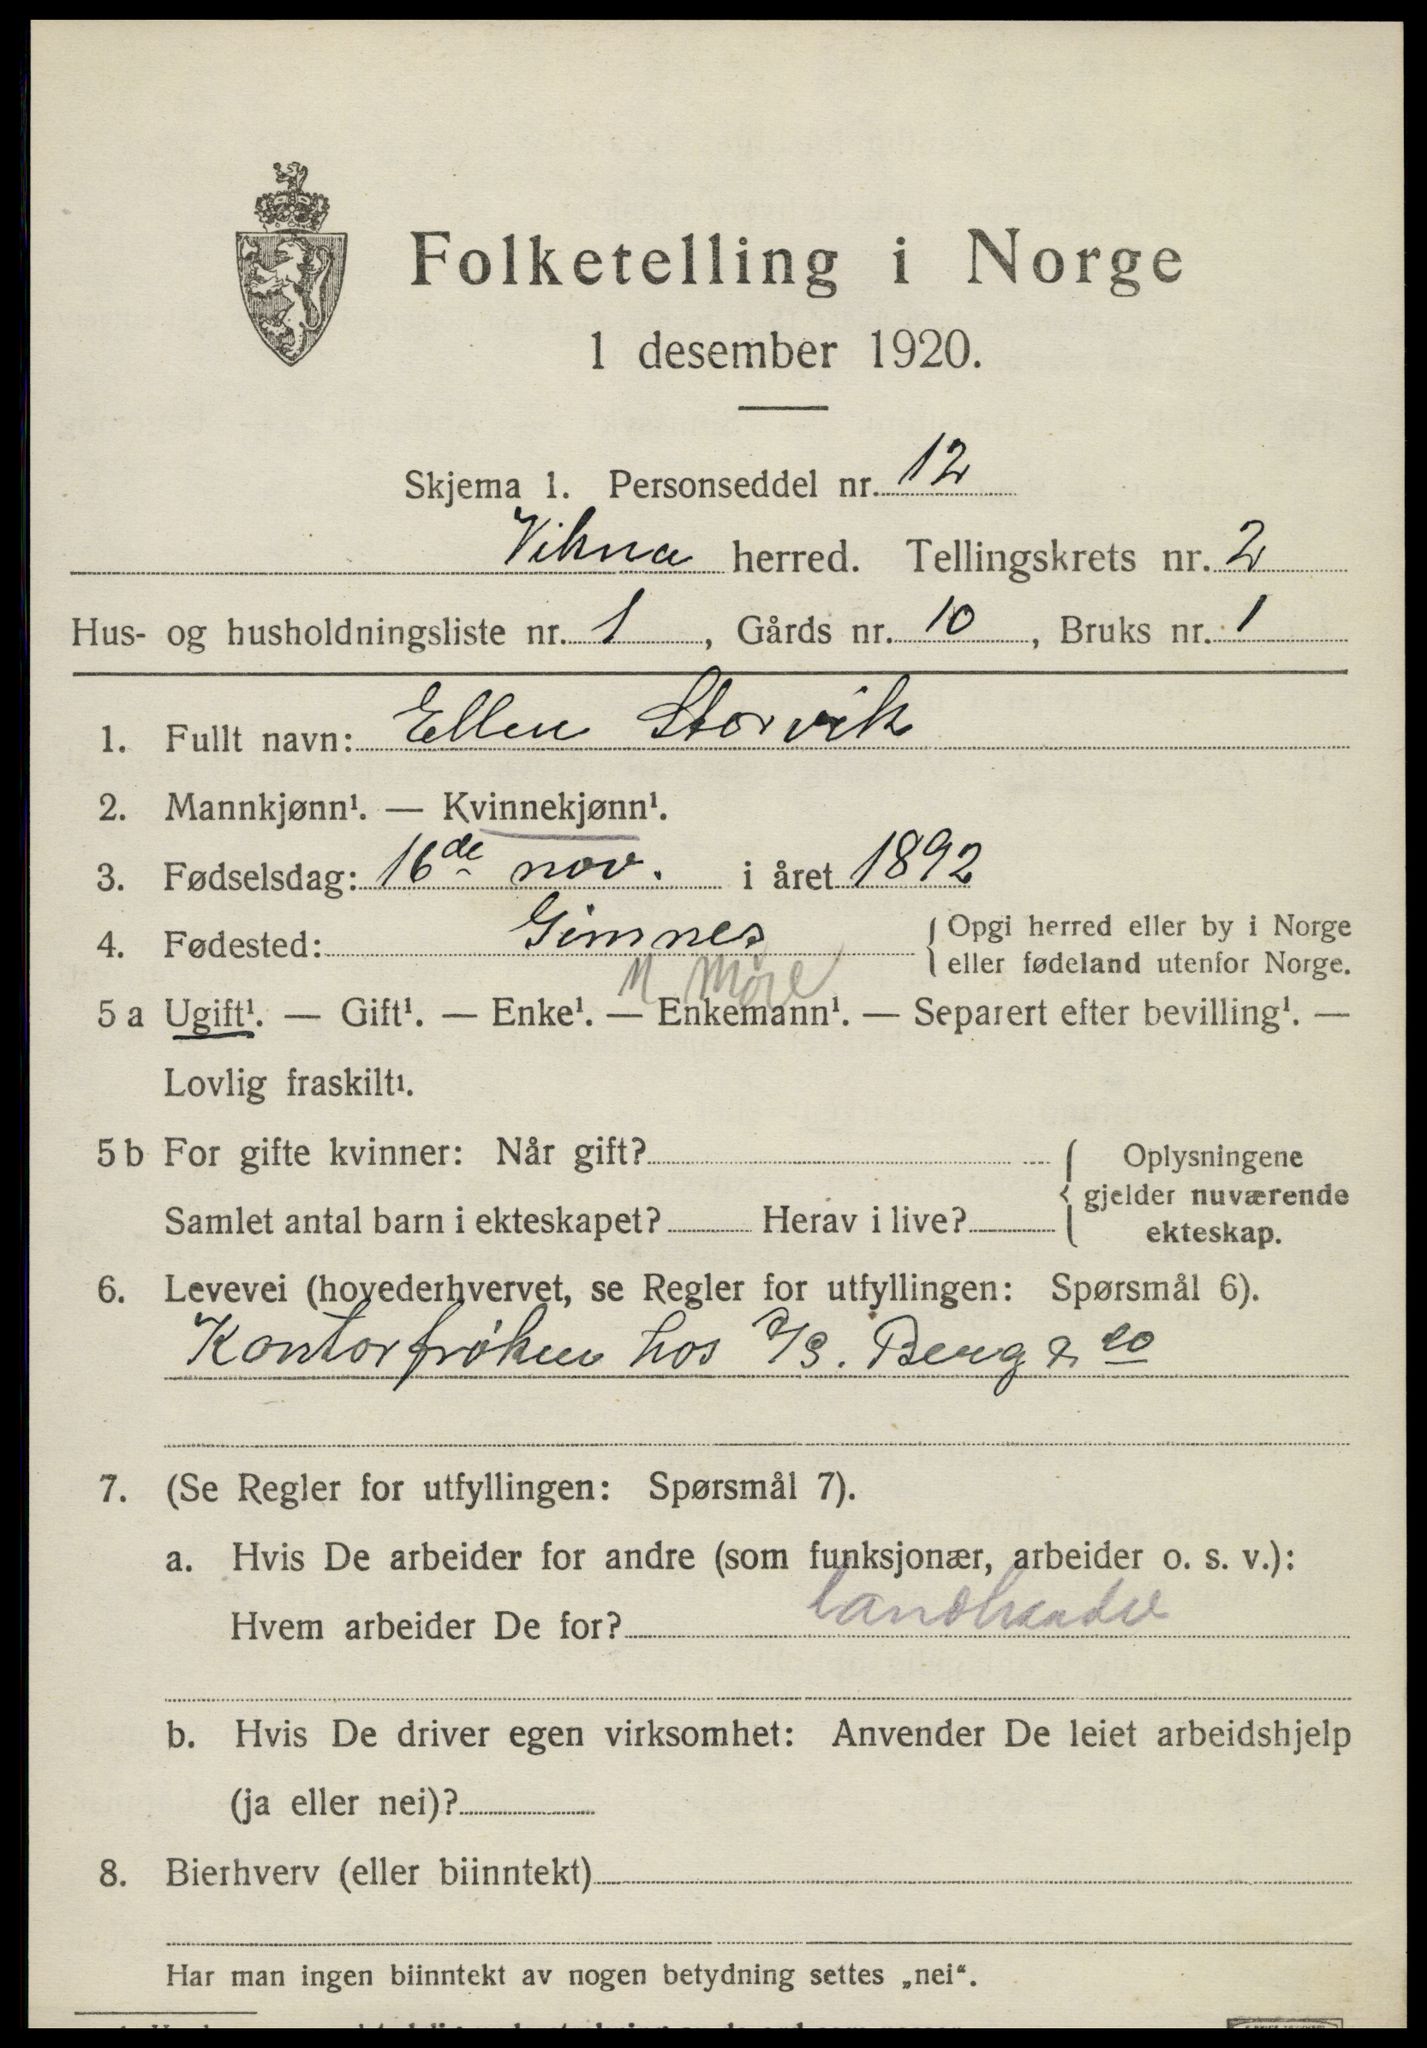 Folketelling i Norge
1 desember 1920.
Skjema 1. Personseddel nr. 12
Vikna herred. Tellingskrets nr. 2
Hus- og husholdningsliste nr. 1, Gårds nr. 10, Bruks nr. 1
1. Fullt navn: Ellen Storvik
2. Mannkjønn¹. — Kvinnekjønn¹.
3. Fødselsdag: 16de nov. i året 1892
4. Fødested: Gimnes { Opgi herred eller by i Norge
eller fødeland utenfor Norge.
N Møre
5 a Ugift¹. — Gift¹. — Enke¹. — Enkemann¹. — Separert efter bevilling¹. —
Lovlig fraskilt¹.
5 b For gifte kvinner: Når gift? { Oplysningene
gjelder nuværende
Samlet antal barn i ekteskapet? Herav i live?
ekteskap.
6. Levevei (hovederhvervet, se Regler for utfyllingen: Spørsmål 6).
Kontorfrøken hos A/S. Berg & Co
7. (Se Regler for utfyllingen: Spørsmål 7).
a. Hvis De arbeider for andre (som funksjonær, arbeider o. s. v.):
Hvem arbeider De for?
b. Hvis De driver egen virksomhet: Anvender De leiet arbeidshjelp
(ja eller nei)?
8. Bierhverv (eller biinntekt)
Har man ingen biinntekt av nogen betydning settes „nei“.